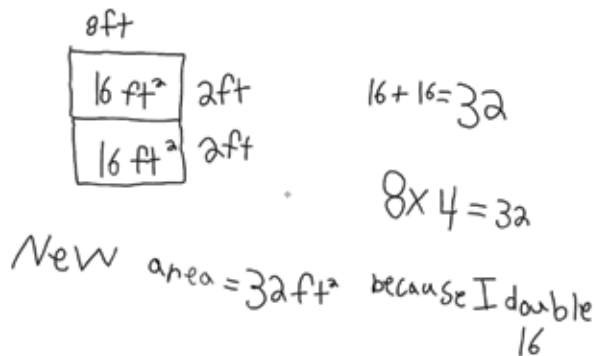 8ft
16 ft² 2ft
16 ft² 2ft
16 + 16 = 32
8 x 4 = 32
New area = 32 ft² because I double
16